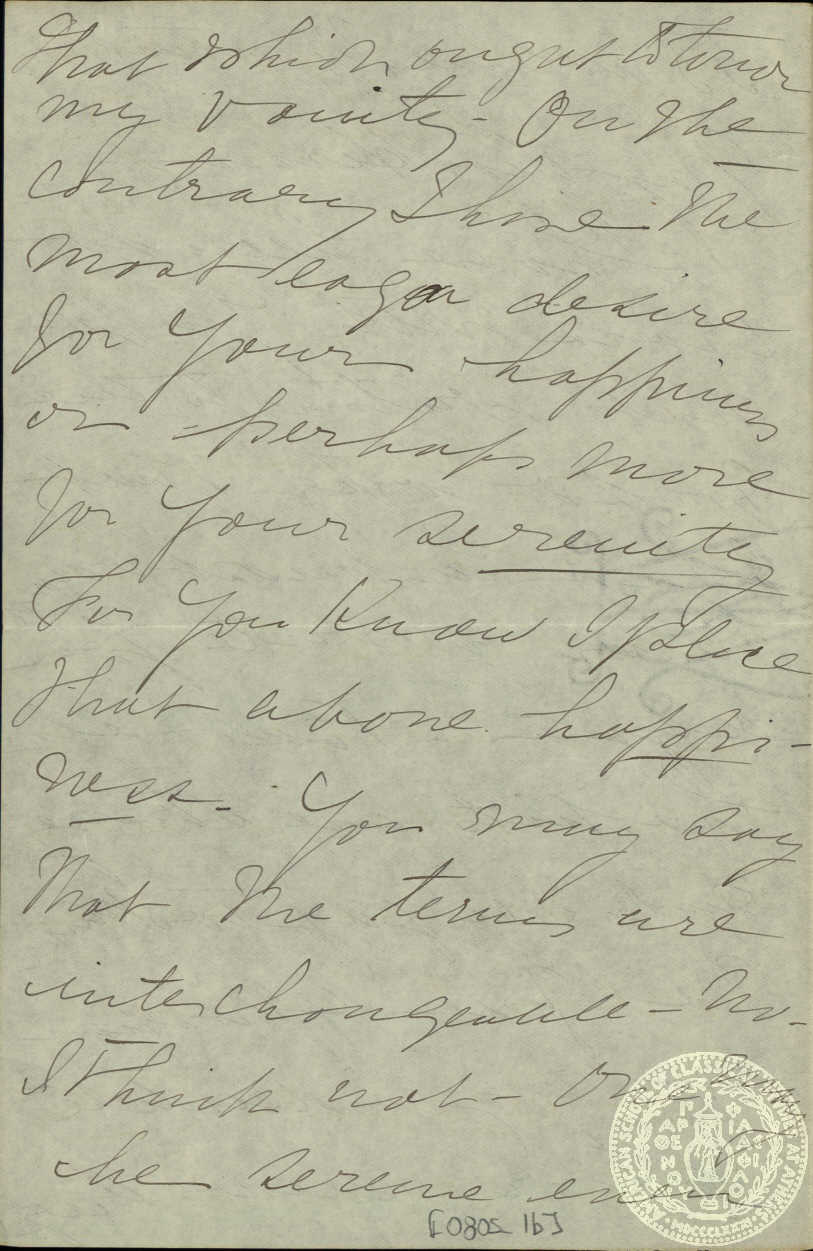 that which ought to
my vanity - On the
contrary I have the
most eager desire
for your happiness
or - perhaps more
for your serenity
For you know I place
that above happi-
ness - You may say
that the terms are
interchangeable - No -
I think not - One may
be serene even
[0805 1b]